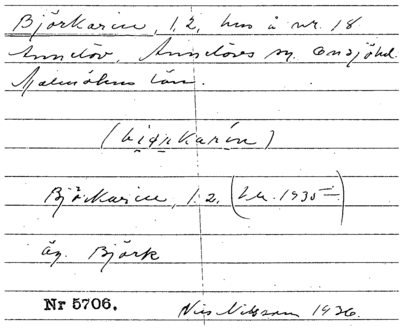 Björkarin, 1. 2, hus å nr. 18
Annelöv, Annelövs sn. Onsjöhd.
Malmöhus län.
(biœrkarín)
Björkarin, 1. 2. (Lm. 1935
äg. Björk
Nr 5706. Nils Nilsson 1936.